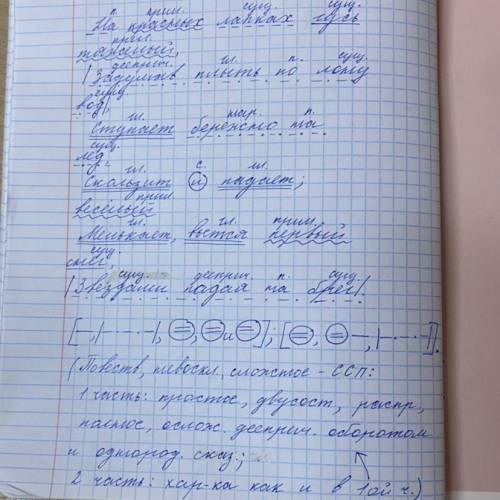 п. прил. сущ. сущ.
На красных лапках гусь
прил.
тяжелый,
дееприч. гл. п. сущ.
|Задумав плыть по лону
сущ.
вод|,
гл. нар. п.
Ступает бережно на
сущ.
лед,
гл. с. гл.
Скользит и падает;
прил.
веселый
гл. гл. прил.
Мелькает, вьется первый
сущ.
снег
сущ. дееприч. п. сущ.
|Звездами падая на брег|.
[–, |–·–·–|, =, = и =]; [=, = –, |–·–·|].
(Повеств, невоскл, сложное - ССП:
1 часть: простое, двусост, распр,
полное, ослож. дееприч. оборотом
и однород. сказ;
2 часть: хар-ка как и в 1ой ч.)